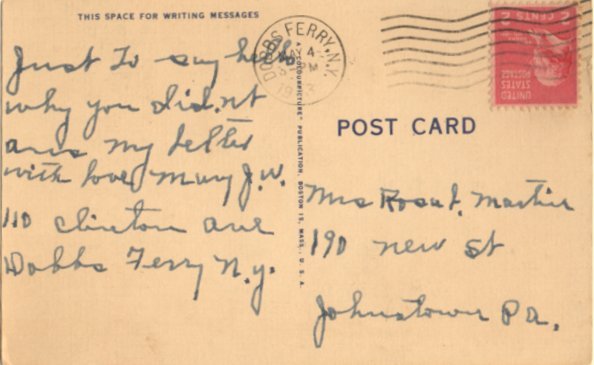 THIS SPACE FOR WRITING MESSAGES
Just to say hello
why you did.nt
ans my letter
with love, Mary J.W.
110 Clinton ave
Dobbs Ferry N.y.
A "COLOURPICTURE" PUBLICATION, BOSTON 15, MASS., U.S.A.
DOBBS FERRY, N.Y.
4
PM
19
POST CARD
2 CENTS 2
UNITED STATES POSTAGE
Mrs Rosa Martin
190 new St
Johnstown Pa.